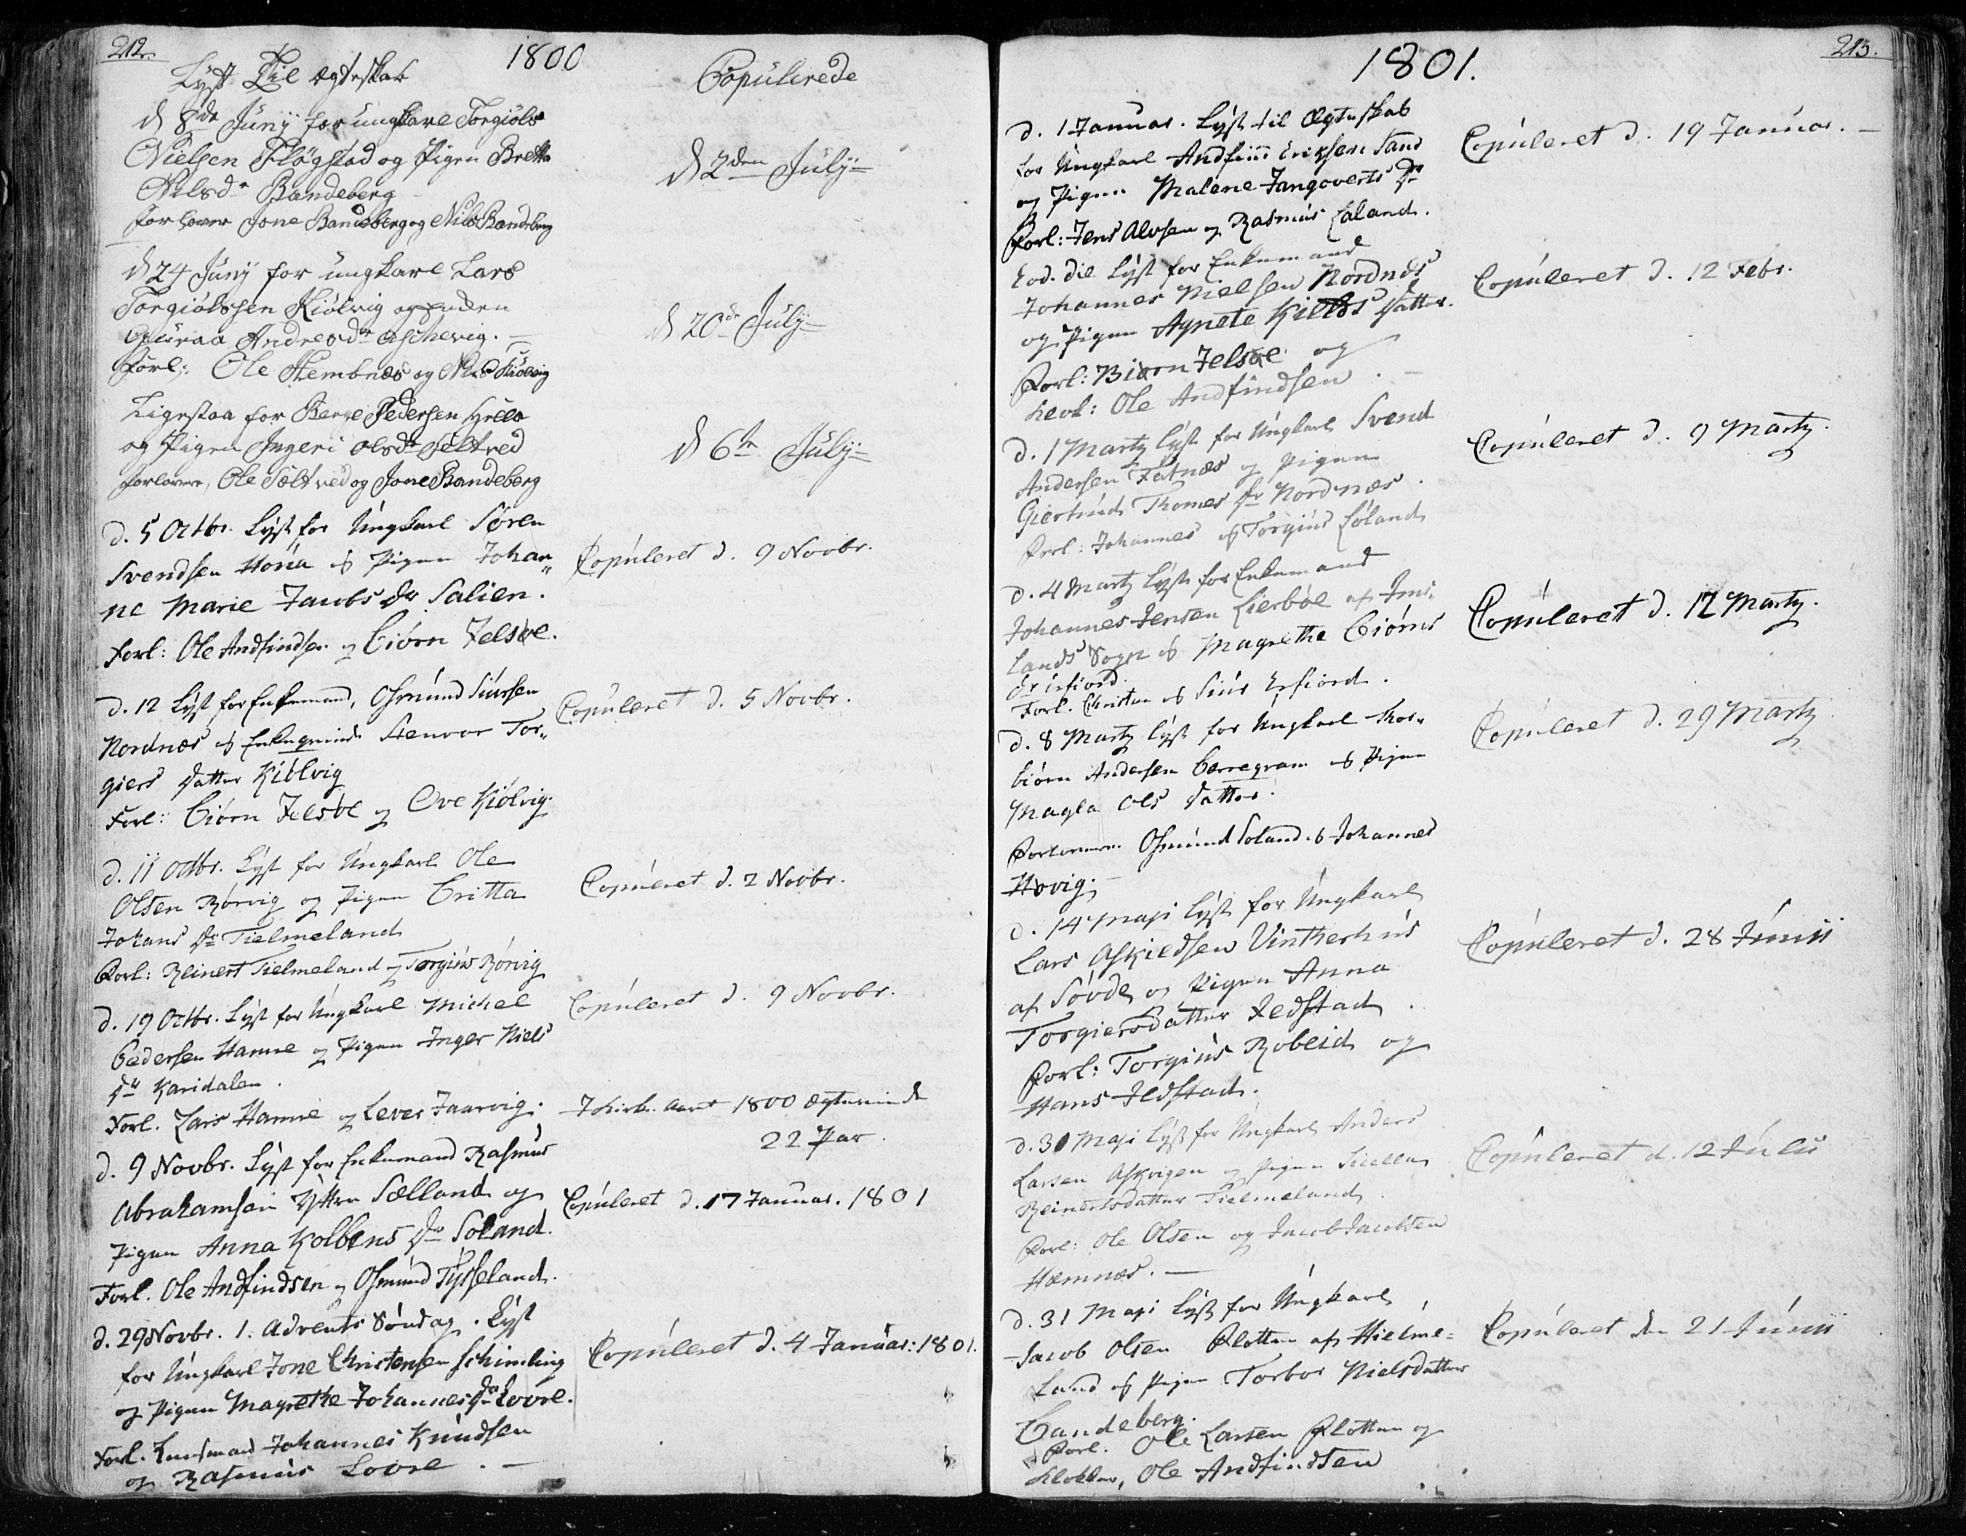 212.
1800
Lyst Til Ægteskab
Copulerede
d 8de Junij for ungkarl Torgiøls
Nielsen Fløgstad og Pigen Britta
Nilsdr Bandeberg
forlover Jone Bandeberg og Nils Bandeberg
d 2den Julij
d 24 Junij for ungkarl Lars
Torgiølssen Kiølvig og enken
Guraa Andresdr
Forl: Ole Hembnæs og Nils Kiølvig
d 20de Julij
Ligesaa for Berge Pedersen
og Pigen Ingeri Olsdr Seltved
forlover, Ole Sæltved og Jone Bandeberg
d 6te Julij
d. 5 Octbr. Lyst for Ungkarl Søren
Svendsen og Pigen Johan-
ne Marie Jacobs dr Salien.
Forl: Ole Andfindsen og Biørn Jelsøe.
Copuleret d. 9 Novbr.
d. 12 Lyst for Enkemand, Osmund Siursen
Nordnæs og Enkeqvinde Stenvor Tor-
giers datter Kiølvig
Forl: Biørn Jelsøe og Ove Kiølvig.
Copuleret d. 5 Novbr.
d. 11 Octbr. Lyst for Ungkarl Ole
Olsen Rørvig og Pigen Britta
Johans dr Tielmeland
Forl: Reinert Tielmeland og Torgius Rørvig
Copuleret d. 2 Novbr.
d. 19 Octbr. Lyst for Ungkarl Michel
Pedersen Hamre og Pigen Inger Niels
dr Karidalen.
Forl. Lars Hamre og Lever Jaarvig.
Copuleret d. 9 Novbr.
Aaret 1800 Ægteviede
22 Par.
d. 9 Novbr. Lyst for Enkemand Rasmus
Abrahamsen Ytter Sælland og
Pigen Anna Kolbens dr Soland.
Forl. Ole Andfindsen og Osmund Tysseland.
Copuleret d. 17 Januar. 1801
d. 29 Novbr. 1. Advents Søndag. Lyst
for Ungkarl Jone Christensen Schimling
og Pigen Magrethe Johannes dr Lovre.
Forl. Johannes Knudsen
og Rasmus Lovre.
Copuleret d. 4 Januar: 1801.
1801.
213.
d. 1 Januar. Lyst til Ægteskab
for Ungkarl Andfind Eriksen Sand
og Pigen Malene Jangoverts dr
Forl: Jens Alvsen og Rasmus Laland.
Copuleret d. 19 Januar.
Eod. die Lyst for Enkemand
Johannes Nielsen Nordnæs
og Pigen Agnete Kields datter.
Forl: Biørn Jelsøe og
Ole Andfindsen.
Copuleret d. 12 Febr.
d. 1 Marty Lyst for Ungkarl Svend
Andersen og Pigen
Giertrud Thomes dr Nordnæs.
Forl: Johannes og Torgius Løland
Copuleret d. 9 Marty.
d. 4 Marty Lyst for Enkemand
Johannes Jensen Lierbøe af Ims-
lands Sogn og Magrethe Biørns
dr Erfiord
Forl. Christen og Siur Erfiord.
Copuleret d. 12 Marty.
d. 8 Marty Lyst for Ungkarl Thor-
biørn Andersen Børregrann og Pigen
Magla Ols datter.
Forlovere. Osmund Soland og Johannes
Hovig.
Copuleret d. 29 Marty
d. 14 Maji Lyst for Ungkarl
Lars Askieldsen Vintherhus
af Søvde og Pigen Anna
Torgiersdatter Jedstad.
Forl: Torgius Robeid og
Hans Jedstad.
Copuleret d. 28 Junii
d. 30 Maji Lyst for Ungkarl Anders
Larsen Askvigen og Pigen
Reinertsdatter Tielmeland.
Forl: Ole Olsen og Jacob Jacobsen
Hæmnæs.
Copuleret d. 12 Julii
d. 31 Maji Lyst for Ungkarl
Jacob Olsen Flotten af Hielme-
land og Pigen Torbor Nielsdatter
Bandeberg.
Forl. Ole Larsen Flotten og
Klokker, Ole Andfindsen
Copuleret den 21 Junii